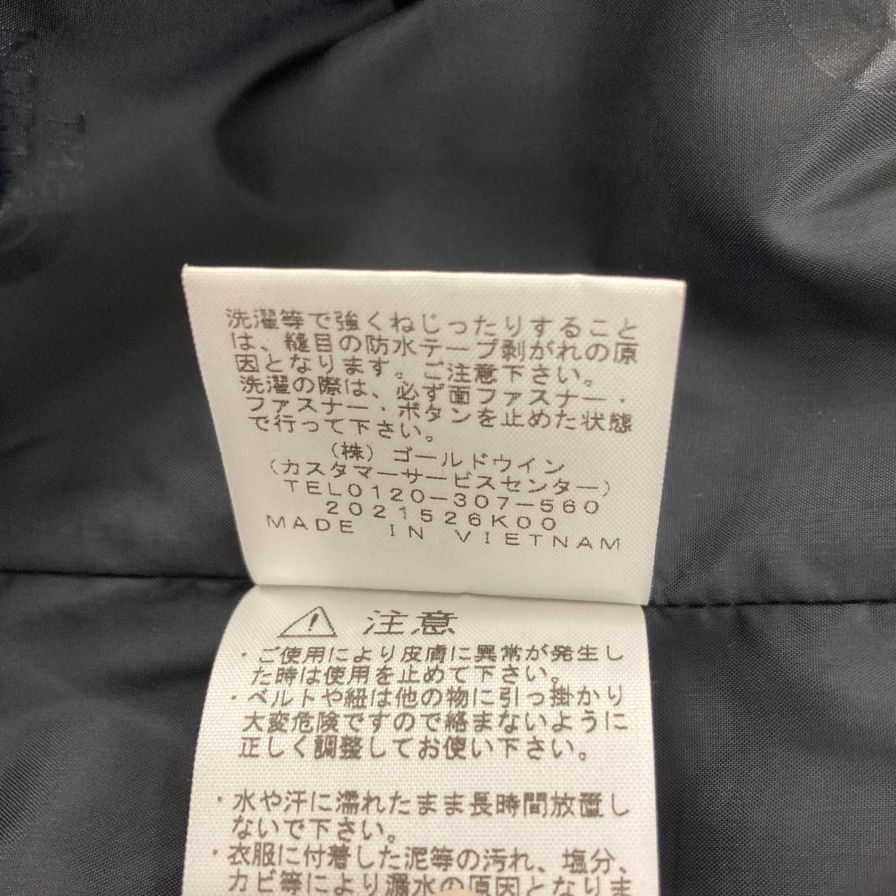 洗濯等で強くねじったりすること
は、縫目の防水テープ剥がれの原
因となります。ご注意下さい。
洗濯の際は、必ず面ファスナー・
ファスナー・ボタンを止めた状態
で行って下さい。
(株)ゴールドウイン
(カスタマーサービスセンター)
TEL0120-307-560
2021526K00
MADE IN VIETNAM
注意
・ご使用により皮膚に異常が発生し
た時は使用を止めて下さい。
・ベルトや紐は他の物に引っ掛かり
大変危険ですので絡まないように
正しく調整してお使い下さい。
・水や汗に濡れたまま長時間放置し
ないで下さい。
・衣服に付着した泥等の汚れ、塩分、
カビ等により漏水の原因となりま